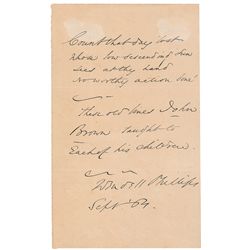 Count that day lost
whose low descending sun
sees at thy hand
no worthy action done
These old lines John
Brown taught to
Each of his children.
Wendell Phillips
Sept '64.